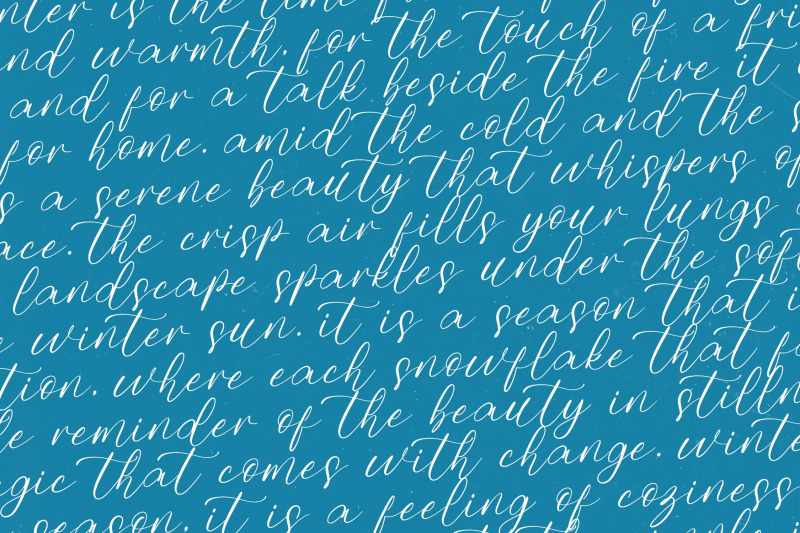 nter is the time for
nd warmth. for the touch of a fri
and for a talk beside the fire it
for home. amid the cold and the s
s a serene beauty that whispers of
ace. the crisp air fills your lungs
landscape sparkles under the soft
winter sun. it is a season that i
tion. where each snowflake that fa
le reminder of the beauty in stilln
gic that comes with change. winte
season. it is a feeling of coziness